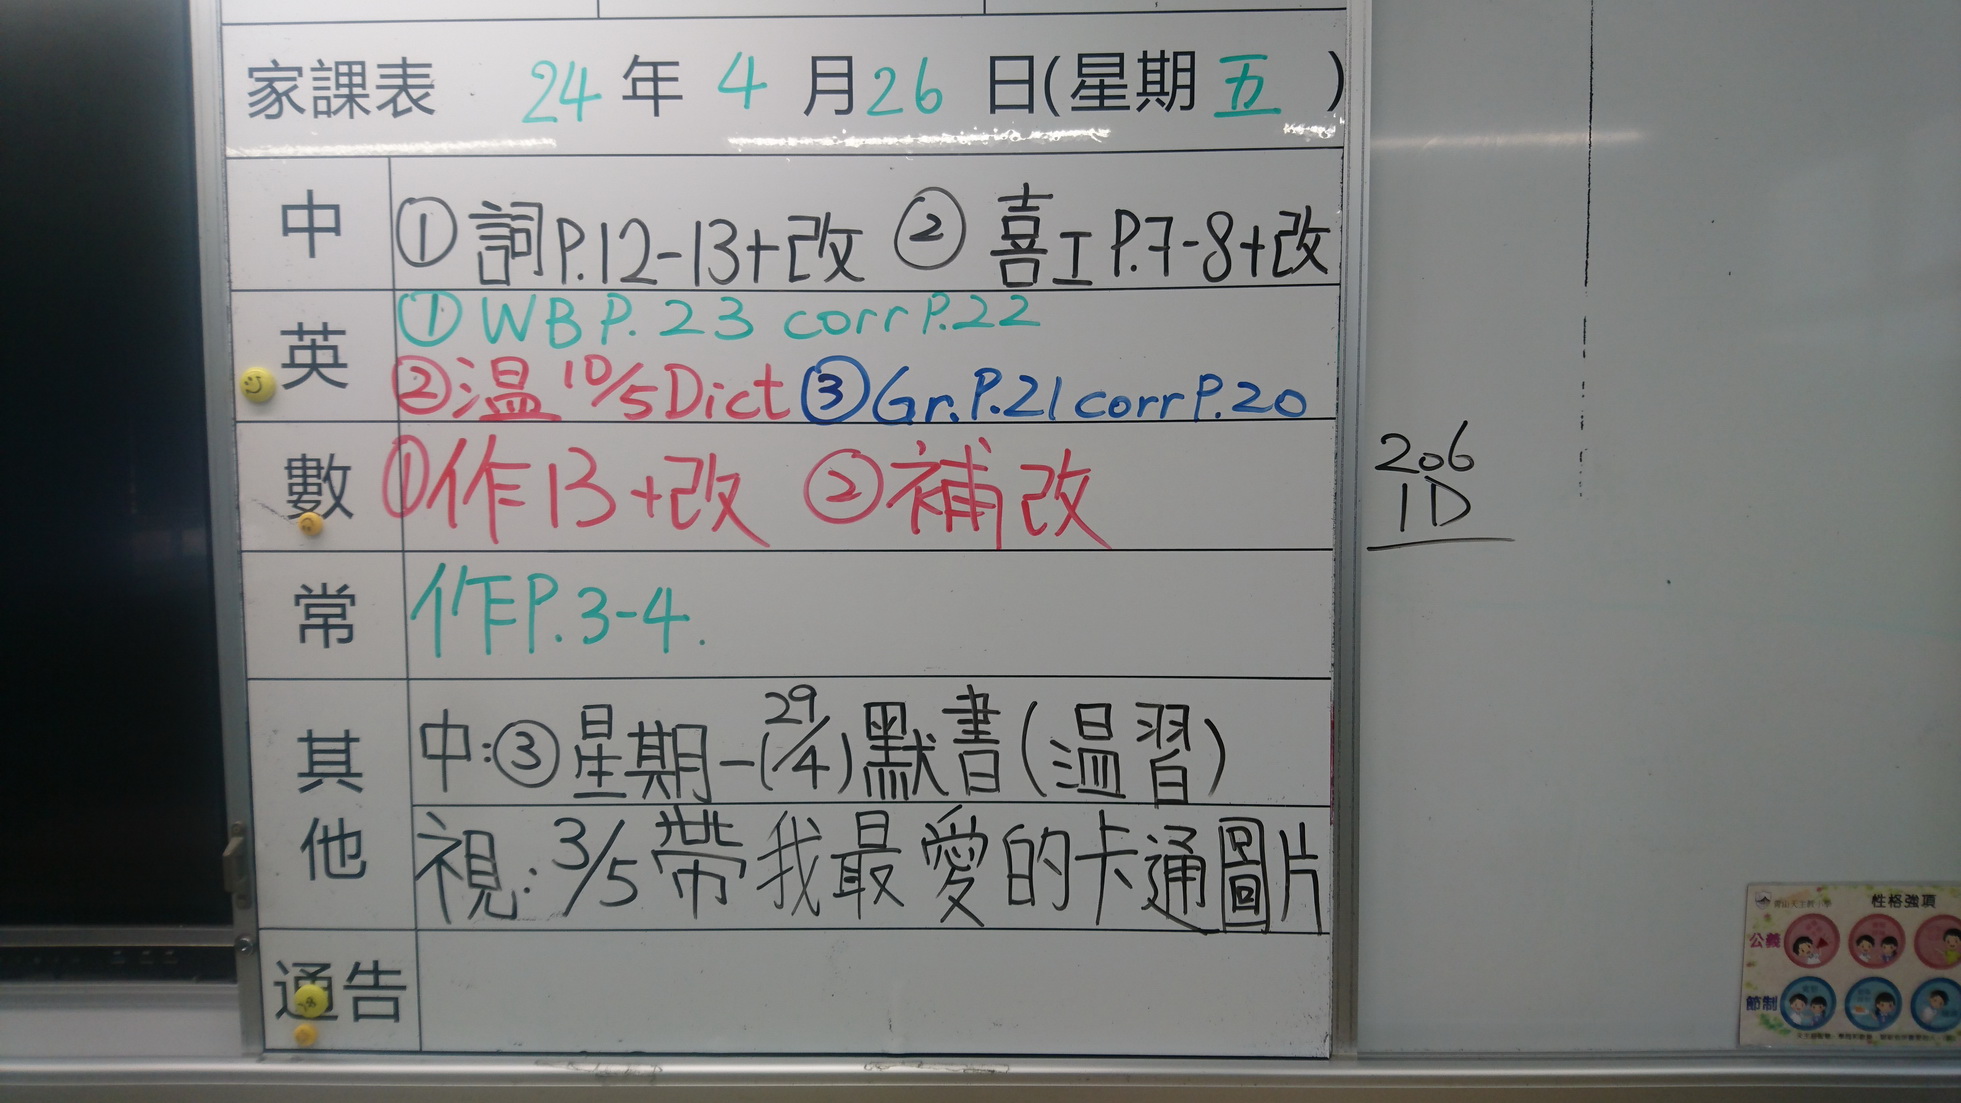 家課表 24 年 4 月 26 日(星期 五 )
中 ① 詞P.12-13+改 ② 喜工P.7-8+改
英 ① WB P. 23 corr P.22
② 温 10/5 Dict ③ Gr. P.21 corr P.20
數 ① 作13+改 ② 補改
常 作P.3-4.
其他 中:③ 星期一(29/4)默書(温習)
視: 3/5 帶我最愛的卡通圖片
通告
206
1D
性格強項
公義
節制